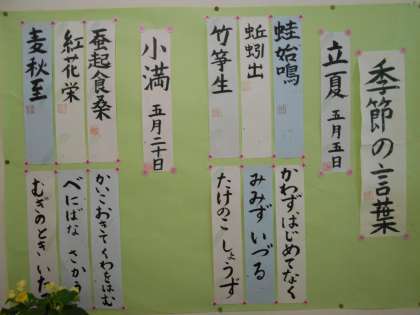 季節の言葉
立夏 五月五日
蛙始鳴
かわずはじめてなく
蚯蚓出
みみずいづる
竹笋生
たけのこしょうず
小満 五月二十日
蚕起食桑
かいこおきてくわをはむ
紅花栄
べにばなさかう
麦秋至
むぎのときいた